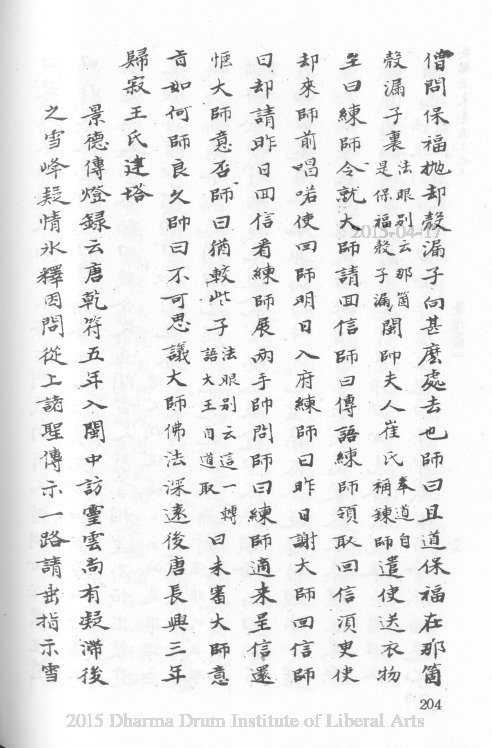 僧問保福抛却殼漏子向甚麽處去也師曰且道保福在那箇
殼漏子裏法眼别云那箇是保福殼子漏閩帥夫人崔氏奉道自稱鍊師遣使送衣物
至曰練師令就大師請回信師曰傳語練師領取回信須叟使
却來師前唱喏便回師明日入府練師曰昨日謝大師回信師
曰却請昨日回信看練師展兩手帥問師曰練師適來呈信還
愜大師意否師曰猶較些子法眼别云這一轉語大王自道取曰未審大師意
旨如何師良久帥曰不可思議大師佛法深遠後唐長興三年
歸寂王氏建塔
景德傳燈録云唐乾符五年入閩中訪靈雲尚有凝滯後
之雪峰疑情氷釋因問從上諸聖傳示一路請垂指示雪
204
2015-04-17
2015 Dharma Drum Institute of Liberal Arts